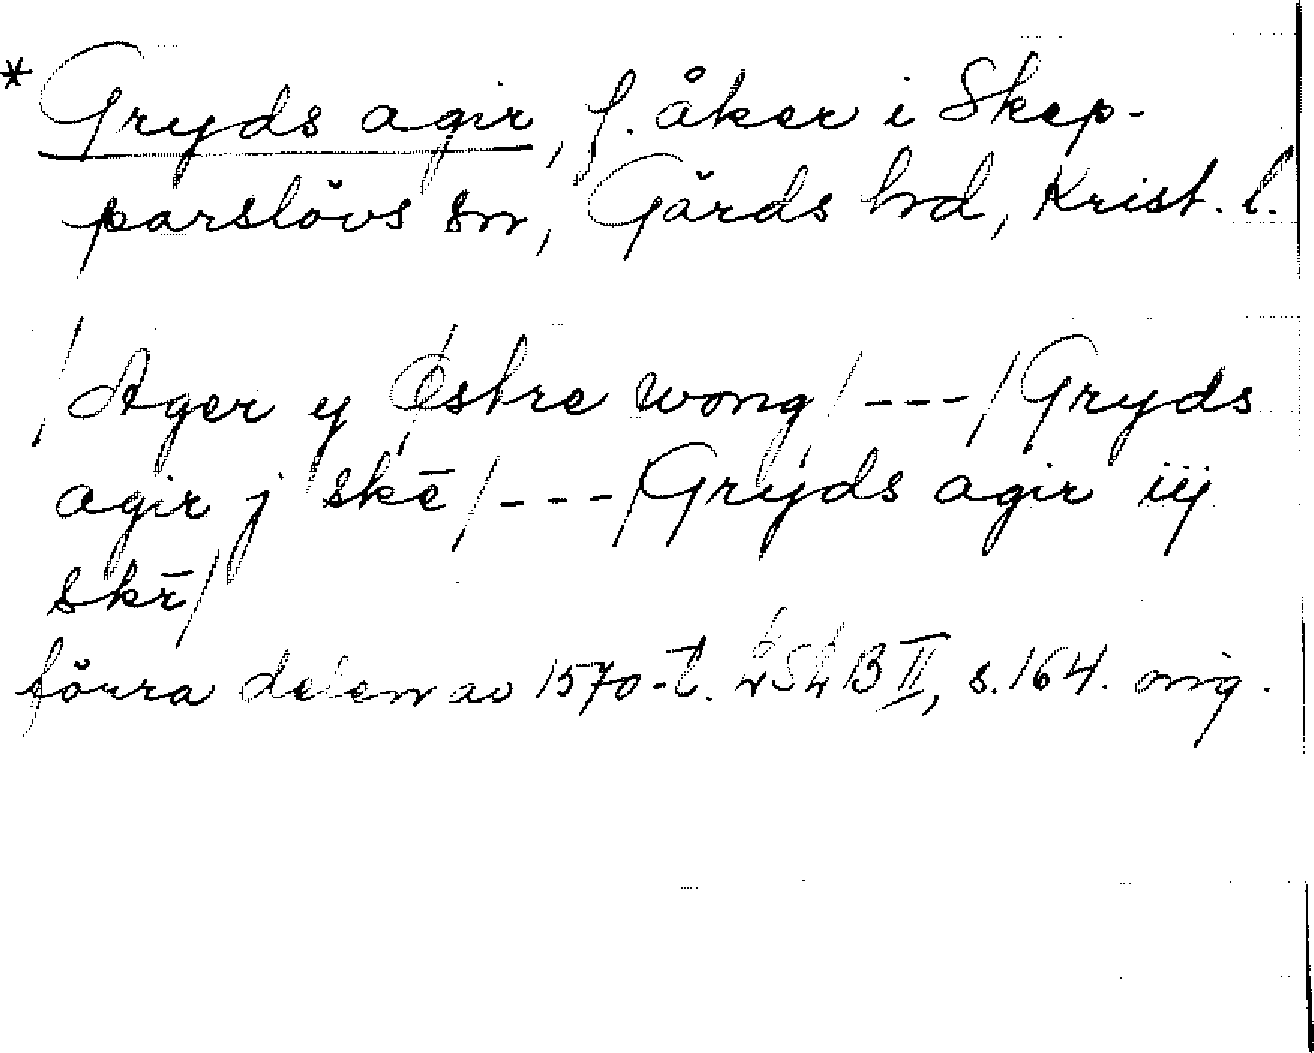 * Gryds agir, f. åker i Skep-
parslövs sn, Gärds hd, Krist. l.
/Ager y Østre wong/ --- /Gryds
agir j skē/ --- /Grÿds agir iij
skr̄/
förra delen av 1570-t. LSLB II, s. 164. orig.